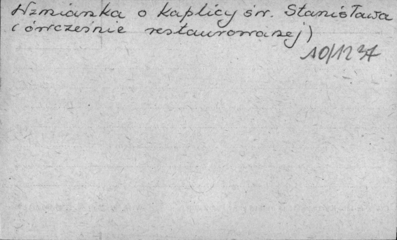 Wzmianka o kaplicy św. Stanisława
(ówcześnie restaurowanej)
10/1237